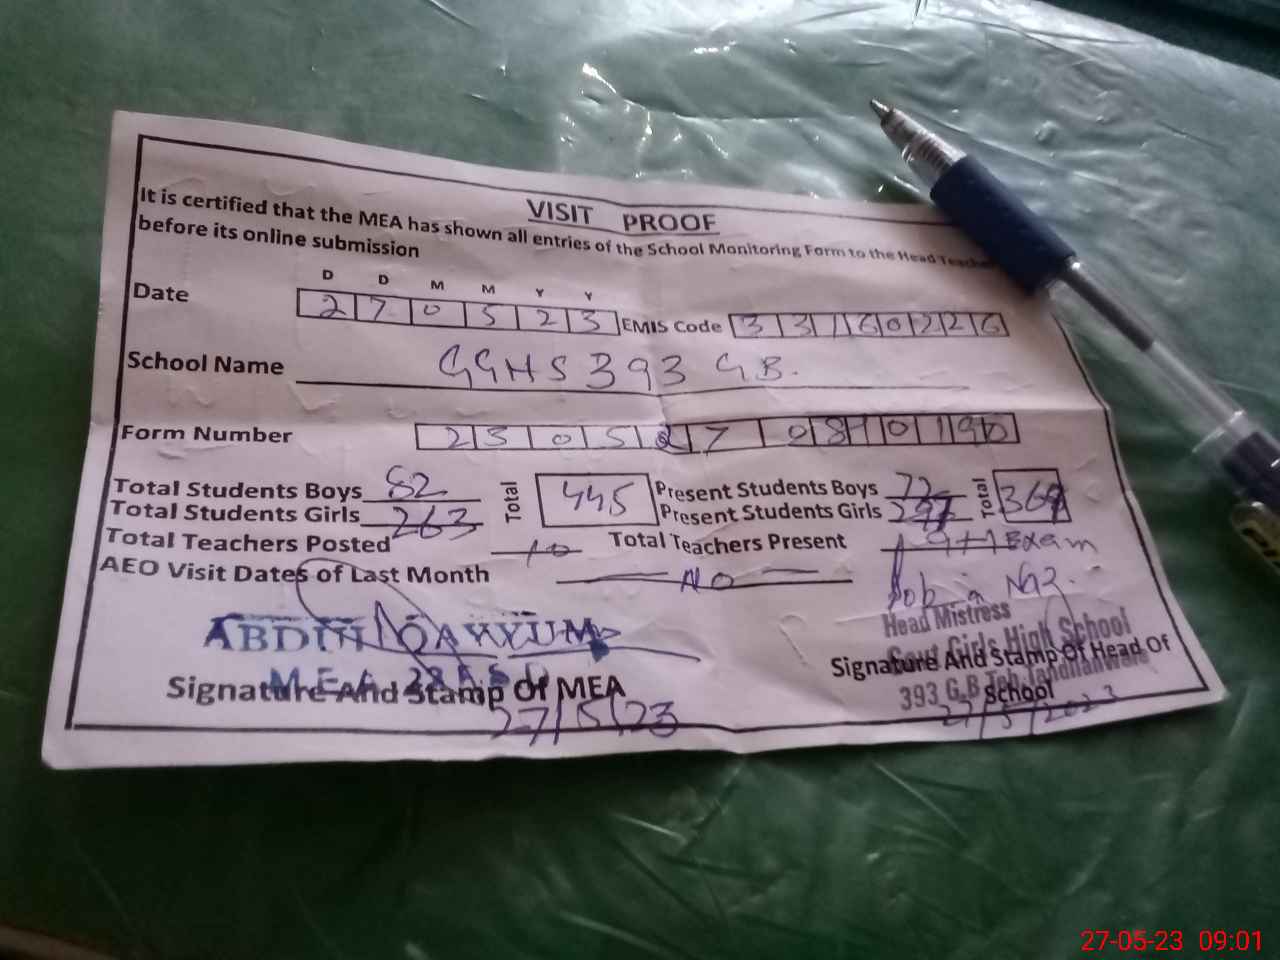 VISIT PROOF
It is certified that the MEA has shown all entries of the School Monitoring Form to the Head Teacher
before its online submission
D D M M Y Y
Date 2 7 0 5 2 3 EMIS Code 3 3 1 6 0 2 2 6
School Name GGHS 393 GB.
Form Number 2 3 0 5 2 7 0 8 1 0 1 9
Total Students Boys 82 Total 445 Present Students Boys 72 Total 369
Total Students Girls 263 Present Students Girls
Total Teachers Posted 10 Total Teachers Present 9+1 Exam
AEO Visit Dates of Last Month No
Head Mistress
ABDUL QAYYUM Govt Girls High School
Signature And Stamp Of MEA Signature And Stamp Of Head Of
393 G.B School
27/5/23 27/5/2023
27-05-23 09:01